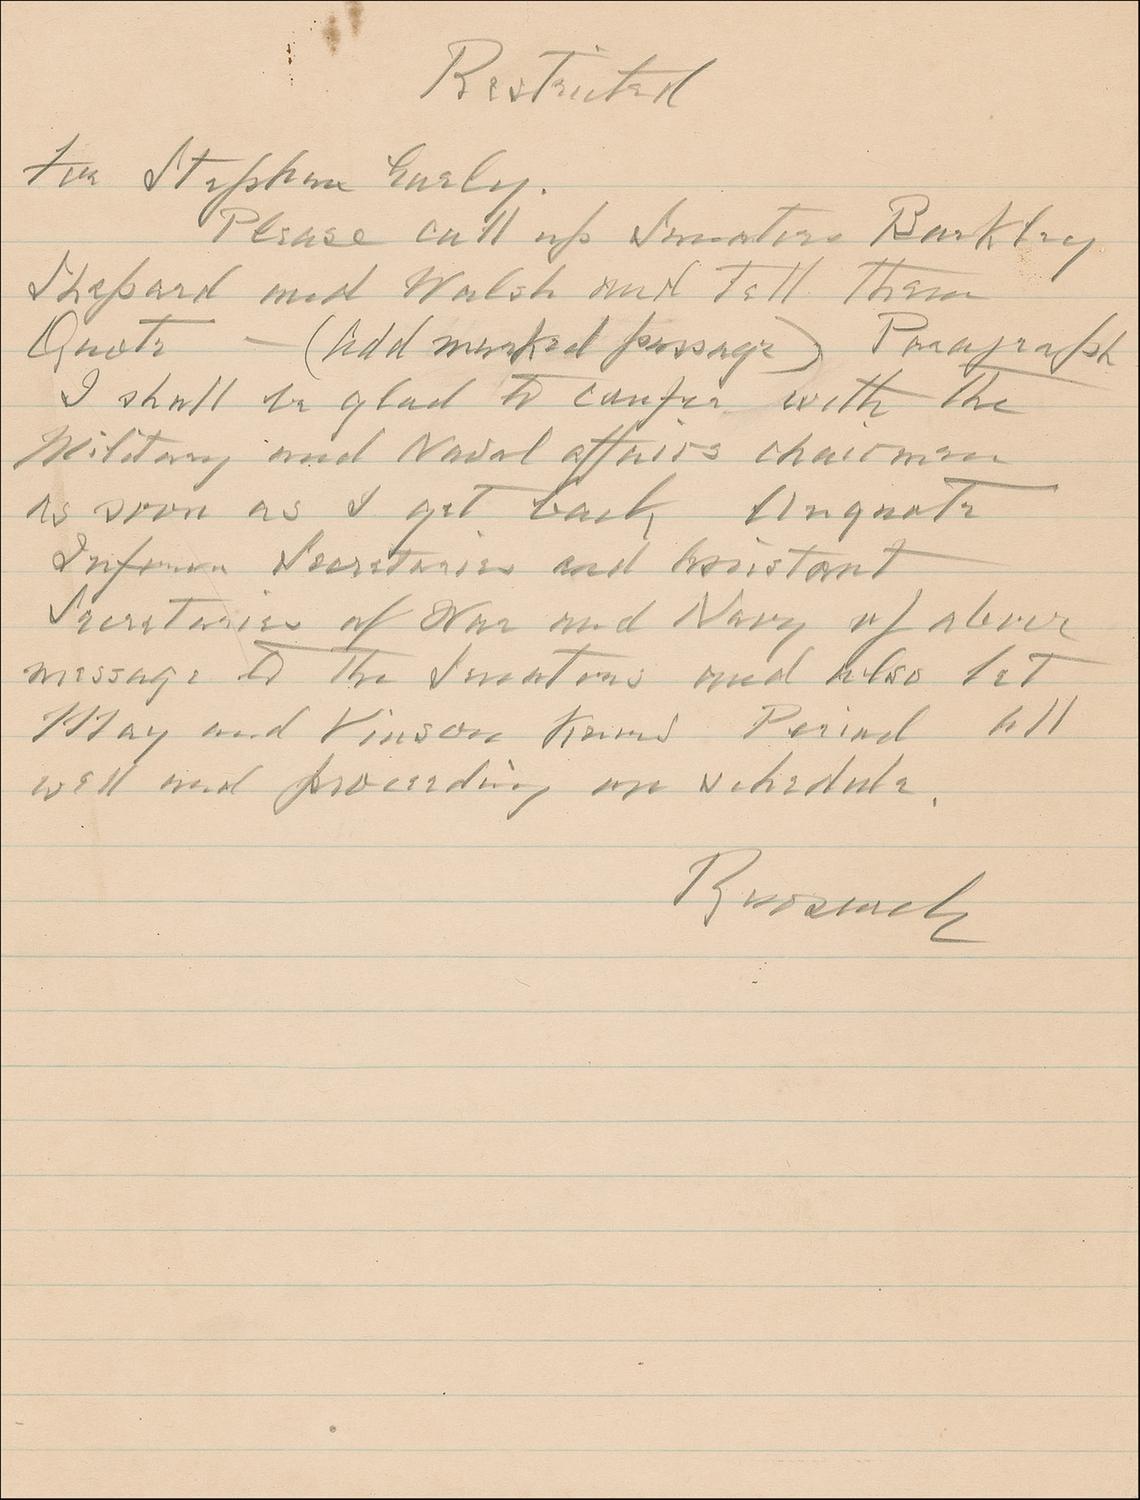 Restricted
For Stephen Early.
Please call up Senators Barkley
Shepard and Walsh and tell them
Quote — (Add marked passage) Paragraph
I shall be glad to confer with the
Military and Naval affairs chairmen
as soon as I get back Unquote
Inform Secretaries and Assistant
Secretaries of War and Navy of above
message to the Senators and also let
May and Vinson know Period All
well and proceeding on schedule.
Roosevelt